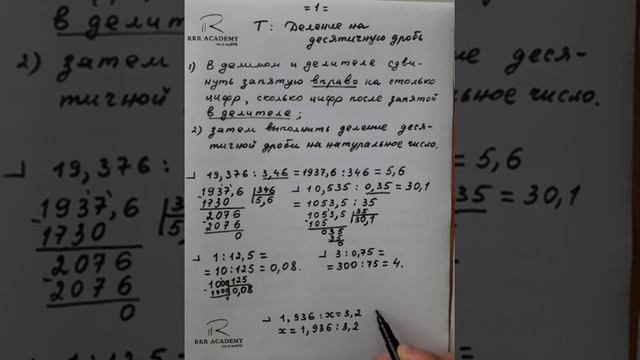 = 1 =
RRR ACADEMY
Т: Деление на
десятичную дробь
1) В делимом и делителе сдви-
нуть запятую вправо на столько
цифр, сколько цифр после запятой
в делителе;
2) затем выполнить деление деся-
тичной дроби на натуральное число.
19,376 : 3,46 = 1937,6 : 346 = 5,6
1937,6 | 346
-1730 | 5,6
2076
-2076
0
10,535 : 0,35 = 30,1
= 1053,5 : 35
1053,5 | 35
-105 | 30,1
035
35
0
1 : 12,5 =
= 10 : 125 = 0,08.
1000 | 125
-1000 | 0,08
0
3 : 0,75 =
= 300 : 75 = 4.
1,936 : x = 3,2
x = 1,936 : 3,2
RRR ACADEMY
2) затем
тичной
19,376 :
1937,6
-1730
2076
-2076
0
деся-
льное число.
= 5,6
35 = 30,1